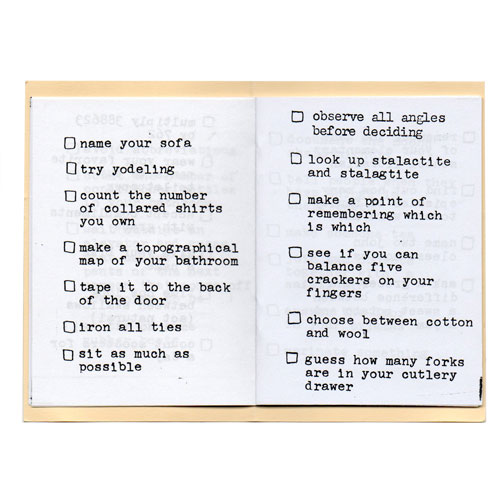 name your sofa
try yodeling
count the number
of collared shirts
you own
make a topographical
map of your bathroom
tape it to the back
of the door
iron all ties
sit as much as
possible
observe all angles
before deciding
look up stalactite
and stalagtite
make a point of
remembering which
is which
see if you can
balance five
crackers on your
fingers
choose between cotton
and wool
guess how many forks
are in your cutlery
drawer